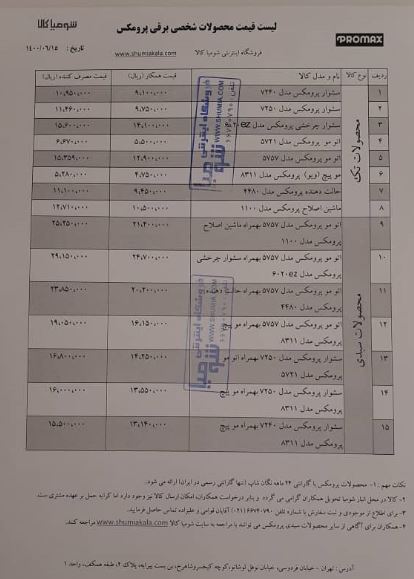 شومیا کالا
لیست قیمت محصولات شخصی برقی پرومکس
PROMAX
تاریخ : ۱۴۰۰/۰۶/۱۵
فروشگاه اینترنتی شومیا کالا www.shumiakala.com
ردیف نوع کالا نام و مدل کالا قیمت همکار (ریال) قیمت مصرف کننده (ریال)
محصولات تک
۱ سشوار پرومکس مدل ۷۲۴۰ ۹,۱۰۰,۰۰۰ ۱۰,۹۵۰,۰۰۰
۲ سشوار پرومکس مدل ۷۲۵۰ ۹,۷۵۰,۰۰۰ ۱۱,۴۶۰,۰۰۰
۳ سشوار چرخشی پرومکس مدل ۶۰۲۰ez ۱۴,۱۰۰,۰۰۰ ۱۵,۶۰۰,۰۰۰
۴ اتو مو پرومکس مدل ۵۷۲۱ ۵,۵۰۰,۰۰۰ ۶,۶۷۰,۰۰۰
۵ اتو مو پرومکس مدل ۵۷۵۷ ۱۲,۹۰۰,۰۰۰ ۱۵,۳۵۹,۰۰۰
۶ مو پیچ (ویو) پرومکس مدل ۸۳۱۱ ۴,۷۵۰,۰۰۰ ۵,۲۸۰,۰۰۰
۷ حالت دهنده پرومکس مدل ۴۴۸۰ ۹,۴۵۰,۰۰۰ ۱۱,۱۰۰,۰۰۰
۸ ماشین اصلاح پرومکس مدل ۱۱۰۰ ۱۰,۵۰۰,۰۰۰ ۱۲,۷۱۰,۰۰۰
محصولات سبدی
۹ اتو مو پرومکس مدل ۵۷۵۷ بهمراه ماشین اصلاح ۲۱,۴۰۰,۰۰۰ ۲۵,۲۵۰,۰۰۰
پرومکس مدل ۱۱۰۰
۱۰ اتو مو پرومکس مدل ۵۷۵۷ بهمراه سشوار چرخشی ۲۴,۷۰۰,۰۰۰ ۲۹,۱۵۰,۰۰۰
پرومکس مدل ۶۰۲۰ez
۱۱ اتو مو پرومکس مدل ۵۷۵۷ بهمراه حالت دهنده ۲۰,۲۰۰,۰۰۰ ۲۳,۸۵۰,۰۰۰
پرومکس مدل ۴۴۸۰
۱۲ اتو مو پرومکس مدل ۵۷۵۷ بهمراه مو پیچ ۱۶,۱۵۰,۰۰۰ ۱۹,۰۵۰,۰۰۰
پرومکس مدل ۸۳۱۱
۱۳ سشوار پرومکس مدل ۷۲۵۰ بهمراه اتو مو ۱۴,۲۵۰,۰۰۰ ۱۶,۸۰۰,۰۰۰
پرومکس مدل ۵۷۲۱
۱۴ سشوار پرومکس مدل ۷۲۵۰ بهمراه مو پیچ ۱۳,۵۵۰,۰۰۰ ۱۶,۰۰۰,۰۰۰
پرومکس مدل ۸۳۱۱
۱۵ سشوار پرومکس مدل ۷۲۴۰ بهمراه مو پیچ ۱۳,۱۴۰,۰۰۰ ۱۵,۵۰۰,۰۰۰
پرومکس مدل ۸۳۱۱
نکات مهم : ۱- محصولات پرومکس با گارانتی ۲۴ ماهه نگان شاپ (تنها گارانتی رسمی در ایران) ارائه می شود.
۲- کالا در محل انبار شومیا تحویل همکاران گرامی می گردد و بنابر درخواست همکاران، امکان ارسال کالا نیز وجود دارد اما کرایه حمل بر عهده مشتری ست.
۳- برای اطلاع از موجودی و ثبت سفارش با شماره تلفن ۶۶۷۲۰۷۹۰(۰۲۱) آقایان قوامی و علیزاده تماس حاصل فرمایید.
۴- همکاران برای آگاهی از سایر محصولات سبدی پرومکس می توانند با مراجعه به سایت شومیا کالا www.shumiakala.com مراجعه کنند.
آدرس : تهران - خیابان فردوسی، خیابان نوفل لوشاتو، کوچه کیخسرو شاهرخ، بن بست پیرایه، پلاک ۲، طبقه همکف، واحد ۱